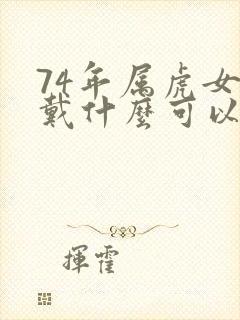 74年属虎女
戴什麼可以
揮霍